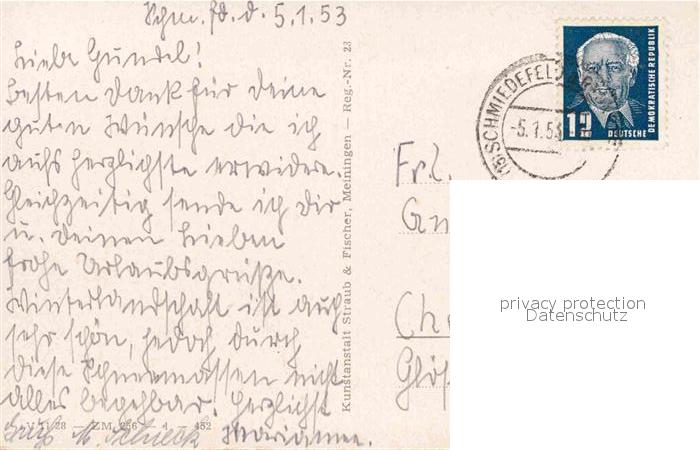 Schm. fd. d. 5.1.53
Liebe Gundel!
Besten Dank für deine
guten Wünsche die ich
aufs herzlichste erwidere.
Gleichzeitig sende ich dir
u. deinen Lieben
frohe Urlaubsgrüße.
Winterlandschaft ist auch
sehr schön, jedoch durch
diese Schneemassen nicht
alles begehbar. Herzlichst
Marianne.
V 11 28 — ZM 256 — 4 — 452
Kunstanstalt Straub & Fischer, Meiningen — Reg.-Nr. 23
SCHMIEDEFELD
-5.1.53
12
DEUTSCHE
DEMOKRATISCHE REPUBLIK
Frl.
privacy protection
Datenschutz